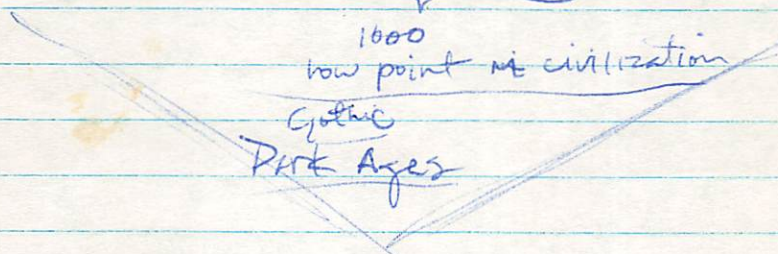 1000
low point in civilization
Gothic
Dark Ages